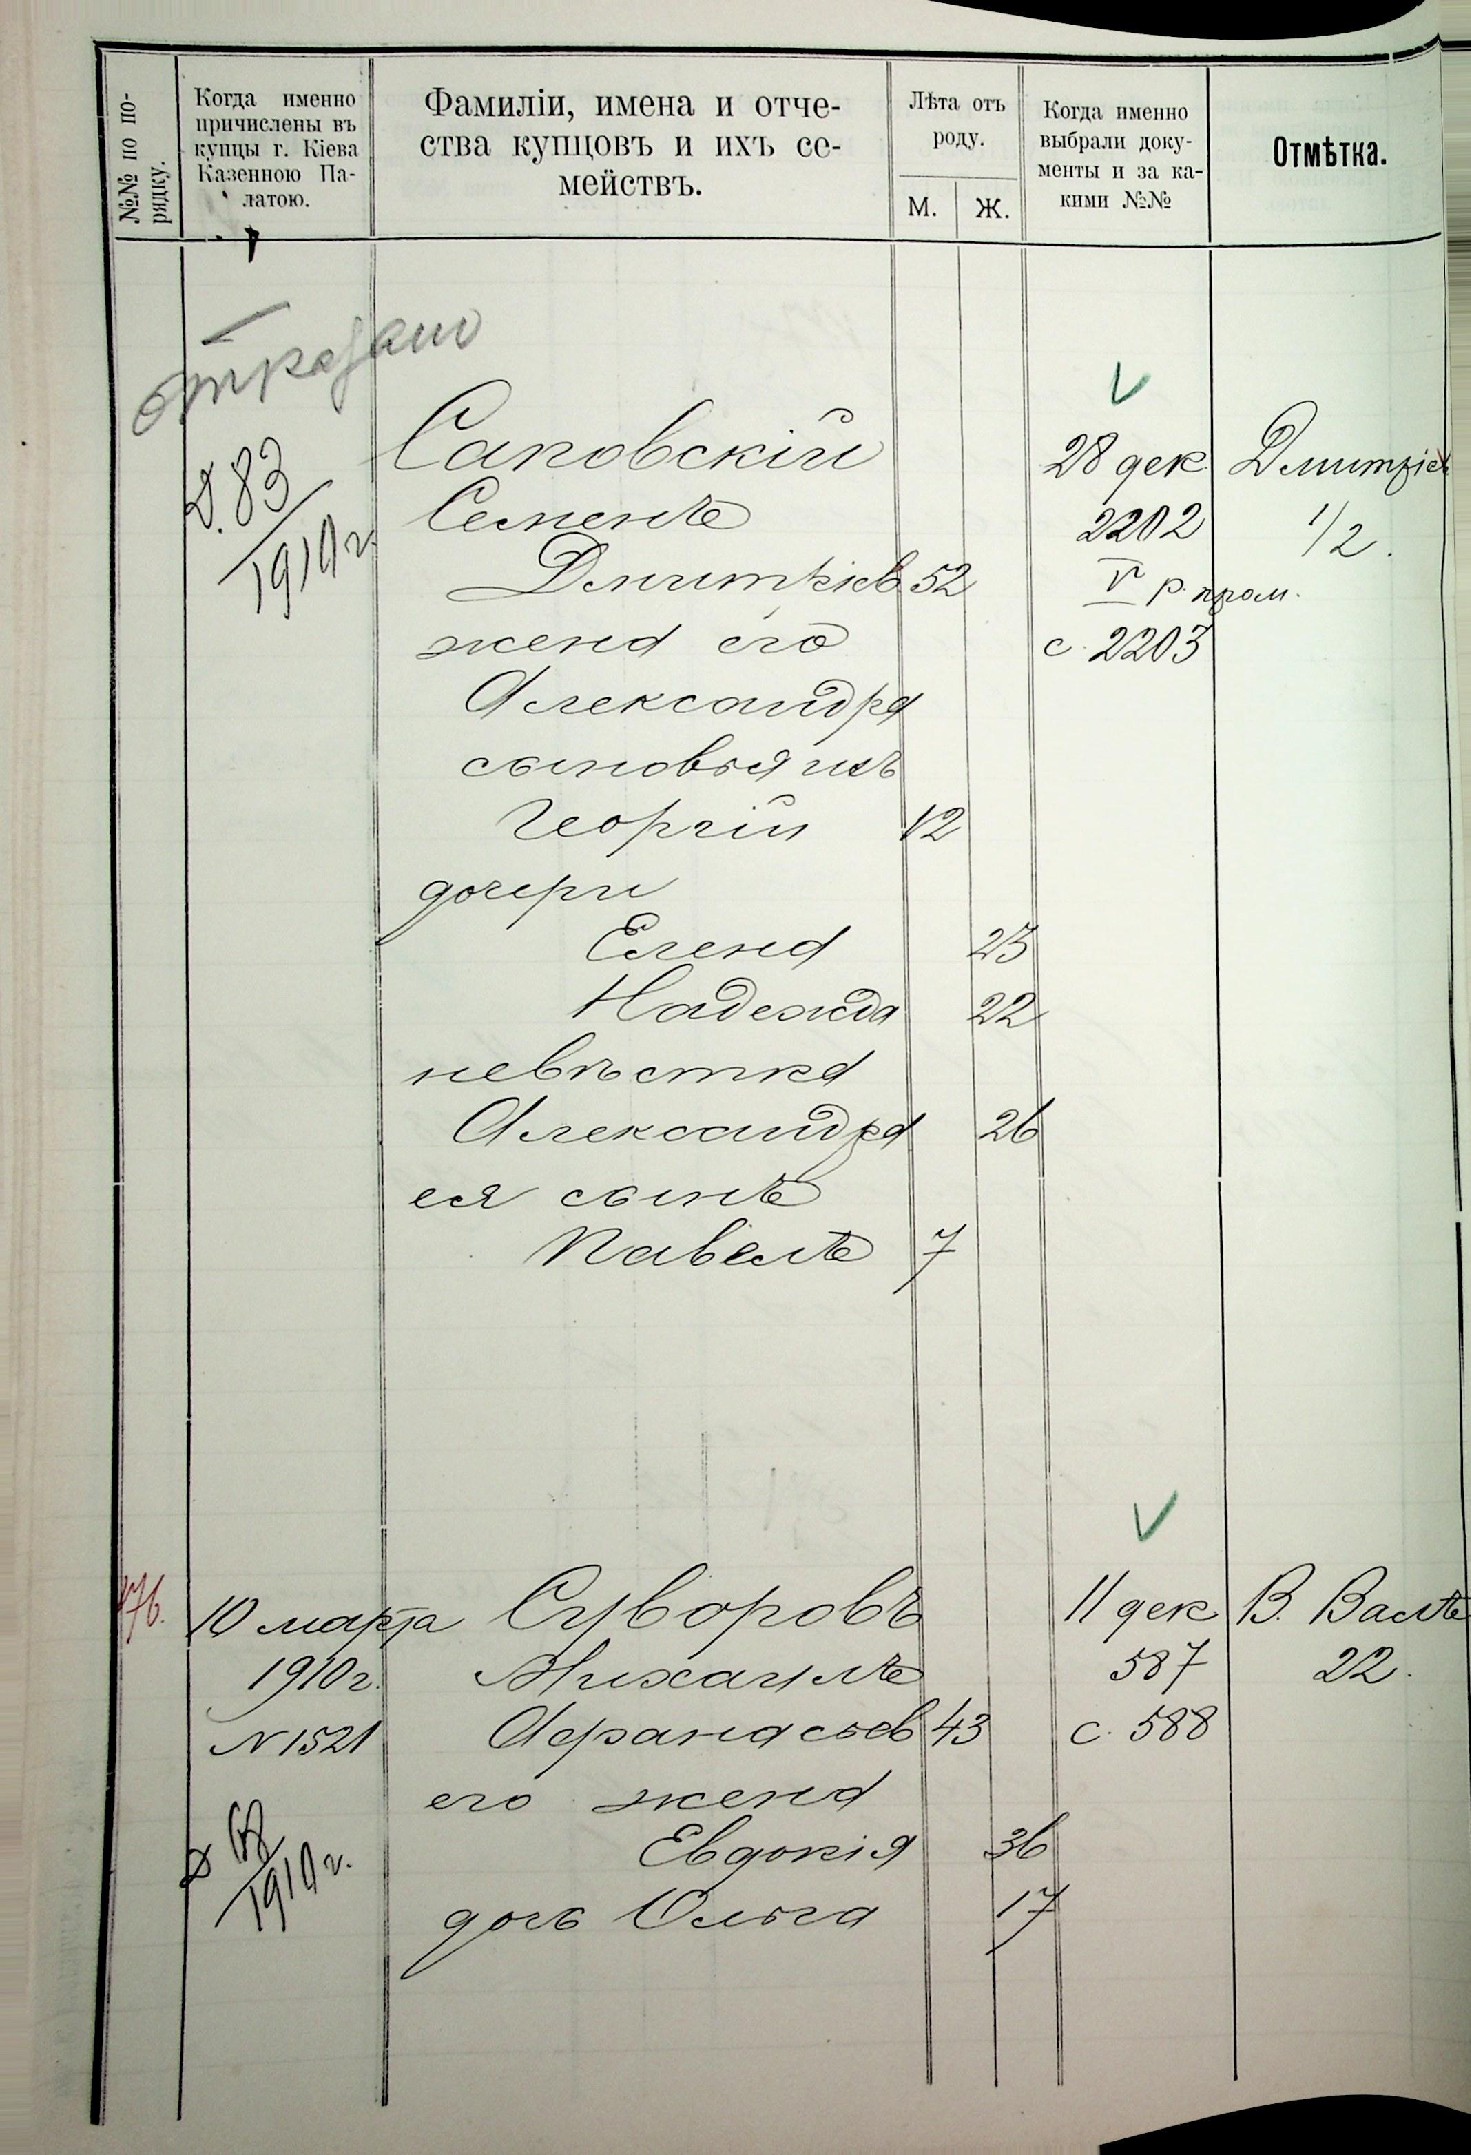 №№ по по-
рядку.
Когда именно
причислены въ
купцы г. Кіева
Казенною Па-
латою.
Фамиліи, имена и отче-
ства купцовъ и ихъ се-
мействъ.
Лѣта отъ
роду.
М. Ж.
Когда именно
выбрали доку-
менты и за ка-
кими №№
Отмѣтка.
отказано
Д. 83
1910 г.
Саповскій 28 дек. Дмитріев
Семенъ 2202 1/2.
Дмитріев 52 V р. пром.
жена его с. 2203
Александра
сыновья ихъ
Георгій 12
дочери
Елена 23
Надежда 22
невѣстка
Александра 26
ея сынъ
Павелъ 7
176. 10 марта Суворовъ 11 дек В. Валъ
1910 г. Михаилъ 587 22.
N 1521 Афанасьев 43 с. 588
его жена
Д 68
1910 г.
Евдокія 36
дочь Ольга 17